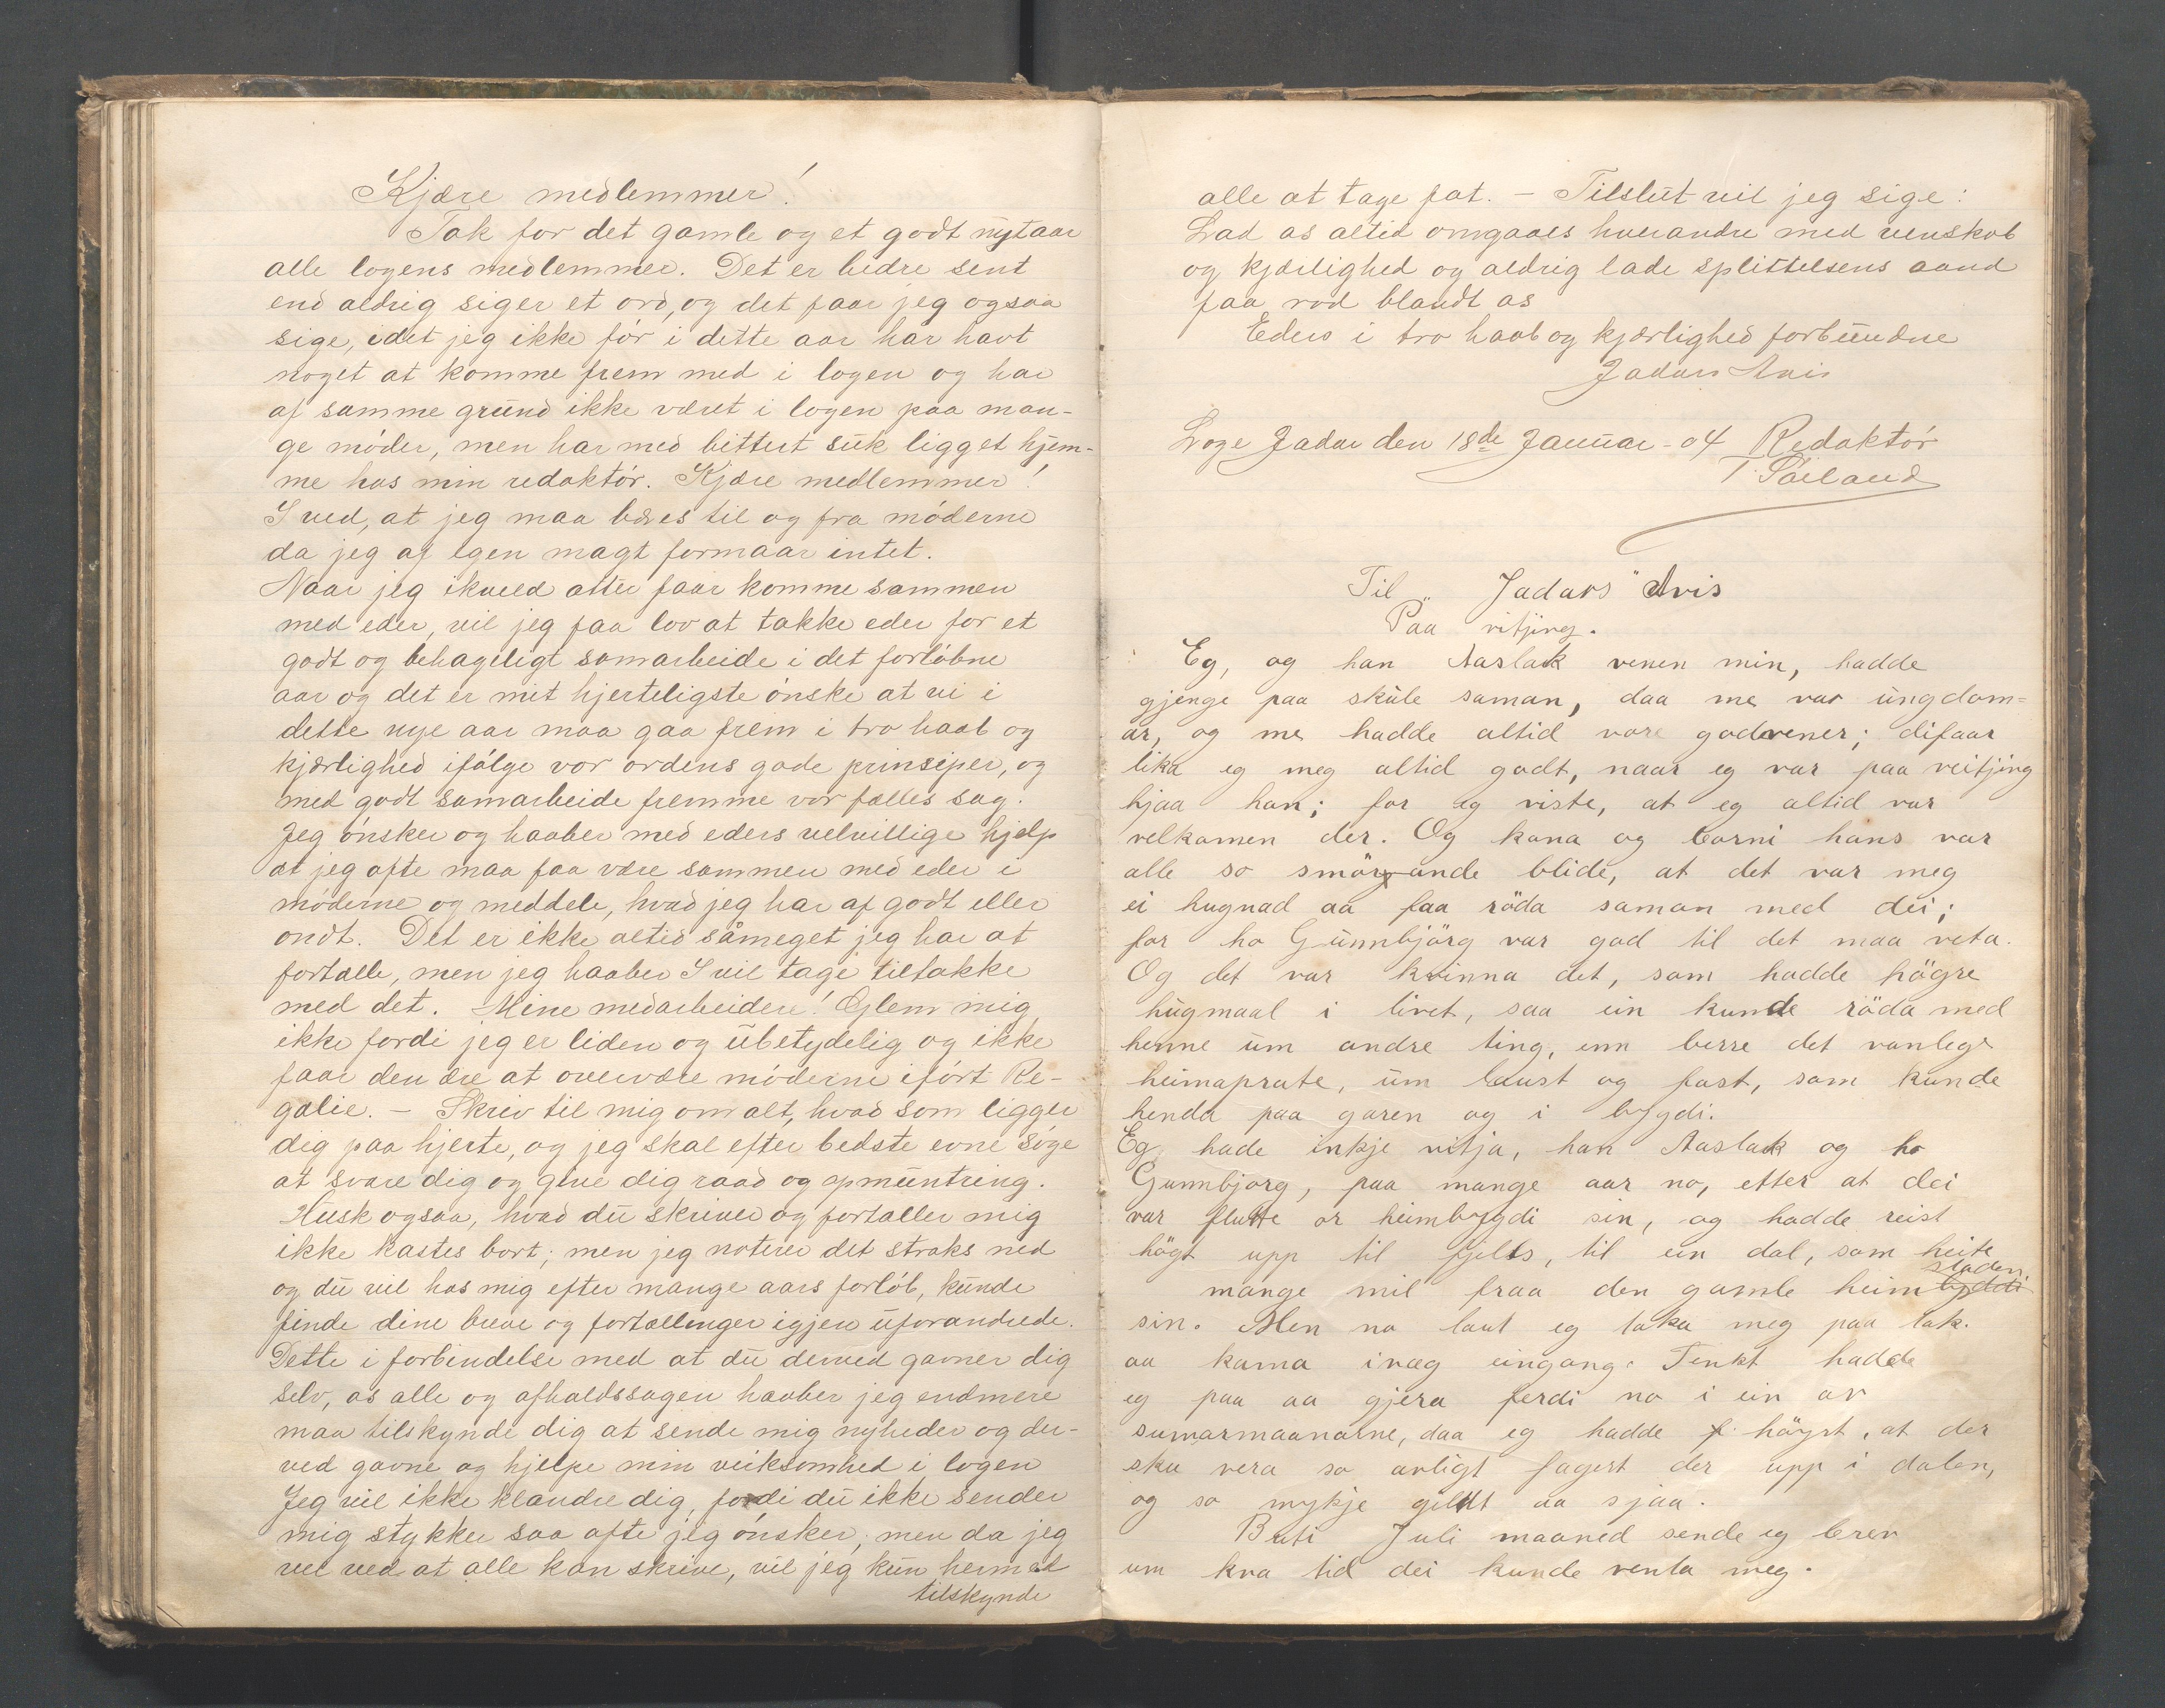 Kjære medlemmer!
Tak for det gamle og et godt nytaar
alle logens medlemmer. Det er bedre sent
end aldrig siger et ord, og det faar jeg ogsaa
sige, idet jeg ikke før i dette aar har havt
noget at komme frem med i logen og har
af samme grund ikke været i logen paa man-
ge møder, men har med bittert suk ligget hjem-
me hos min redaktør. Kjære medlemmer!
I ved, at jeg maa bæres til og fra møderne
da jeg af egen magt formaar intet.
Naar jeg ikveld atter faar komme sammen
med eder, vil jeg faa lov at takke eder for et
godt og behageligt samarbeide i det forløbne
aar og det er mit hjerteligste ønske at vi i
dette nye aar maa gaa frem i tro haab og
kjærlighed ifølge vor ordens gode prinsiper, og
med godt samarbeide fremme vor fælles sag.
Jeg ønsker og haaber med eders velvillige hjelp
at jeg ofte maa faa være sammen med eder i
møderne og meddele, hvad jeg har af godt eller
ondt. Det er ikke altid såmeget jeg har at
fortælle, men jeg haaber I vil tage tiltakke
med det. Mine medarbeidere! Glem mig
ikke fordi jeg er liden og ubetydelig og ikke
faar den ære at overvære møderne iført Re-
galie. – Skriv til mig om alt, hvad som ligger
dig paa hjerte, og jeg skal efter bedste evne søge
at svare dig og give dig raad og opmuntring.
Husk ogsaa, hvad du skriver og fortæller mig
ikke kastes bort; men jeg noterer det straks ned
og du vil hos mig efter mange aars forløb, kunde
finde dine breve og fortællinger igjen uforandrede.
Dette i forbindelse med at du derved gavner dig
selv, os alle og afholdssagen haaber jeg endmere
maa tilskynde dig at sende mig nyheder og der-
ved gavne og hjelpe min virksomhed i logen
Jeg vil ikke klandre dig, fordi du ikke sender
mig stykker saa ofte jeg ønsker, men da jeg
vel ved at alle kan skrive, vil jeg kun hermed
tilskynde
alle at tage fat. – Tilslut vil jeg sige:
Lad os altid omgaaes hverandre med venskab
og kjærlighed og aldrig lade splittelsens aand
faa rod blandt os
Eders i tro haab og kjærlighed forbundne
Jadars Avis
Loge Jadar den 18de Januar -04 Redaktør
T.
Til „Jadars" Avis
Paa vitjing.
Eg, og han Aaslak venen min, hadde
gjenge paa skule saman, daa me var ungdom=
ar, og me hadde altid vore godvener; difaar
lika eg meg altid godt, naar eg var paa veitjing
hjaa han; for eg viste, at eg altid var
velkomen der. Og kona og borni hans var
alle so smörjande blide, at det var meg
ei hugnad aa faa röda saman med dei;
for ho Gunnbjörg var god til det maa veta.
Og det var kvinna det, som hadde högre
hugmaal i livet, saa ein kunde röda med
henne um andre ting, enn berre det vanlege
heimaprate, um laust og fast, som kunde
henda paa garen og i bygdi.
Eg hade inkje vitja, han Aaslak og ho
Gunnbjorg, paa mange aar no, etter at dei
var flutte or heimbygdi sin, og hadde reist
högt upp til fjells, til ein dal, som heite
mange mil fraa den gamle heimbygdi staden
sin. Men no laut eg taka meg paa tak.
aa koma ivæg eingang. Tenkt hadde
eg paa aa gjera ferdi no i ein av
sumarmaanarne, daa eg hadde f höyrt, at der
sku vera so ovligt fagert der upp i dalen,
og so mykje gildt aa sjaa.
Buti Juli maaned sende eg brev
um kva tid dei kunde venta meg.